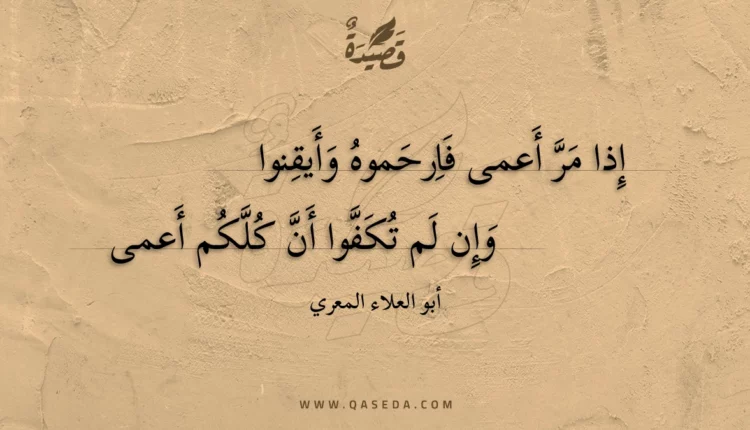 قَصِيدَةٌ
إِذا مَرَّ أَعمى فَاِرحَموهُ وَأَيقِنوا
وَإِن لَم تُكَفَّوا أَنَّ كُلَّكُم أَعمى
أبو العلاء المعري
WWW.QASEDA.COM